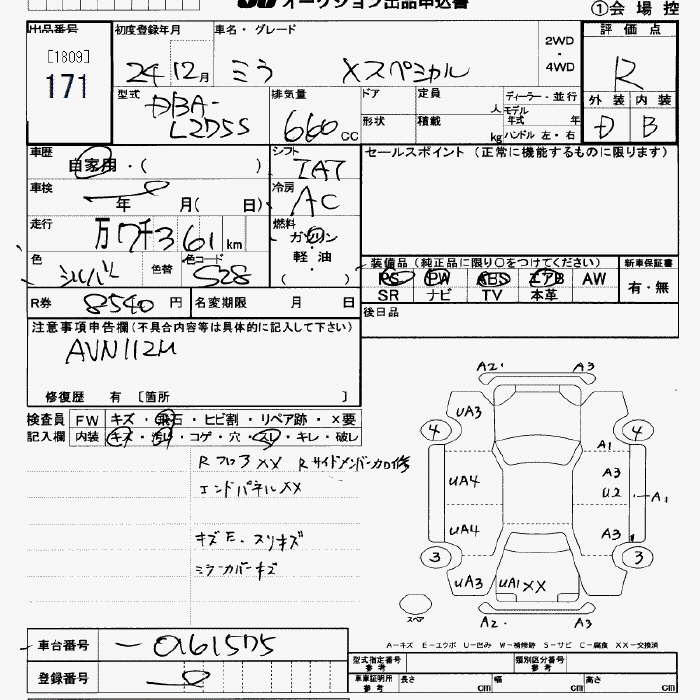 オークション出品申込書
①会場控
出品番号
[1809]
171
初度登録年月
24 12月
車名・グレード
ミラ Xスペシャル
2WD
・
4WD
評価点
R
外装 内装
D B
型式
DBA-
L275S
排気量
660 CC
ドア 定員 人
形状 積載 kg
ディーラー・並行
モデル年式 年
ハンドル 左・右
車歴
自家用・( )
シフト
IAT
セールスポイント(正常に機能するものに限ります)
車検
年 月( 日)
冷房
AC
走行
万7千361km
燃料
ガソリン
軽・油
( )
色
シルバー
色替
色コード
S28
装備品(純正品に限り○をつけてください)
新車保証書
PS PW ABS エアB AW
有・無
SR ナビ TV 本革
R券 8540円
名変期限 月 日
後日品
注意事項申告欄(不具合内容等は具体的に記入して下さい)
AVN112M
修復歴 有 [箇所 ]
検査員 FW キズ・飛石・ヒビ割・リペア跡・×要
記入欄 内装 キズ・汚れ・コゲ・穴・スレ・キレ・破レ
RフロアXX Rサイドメンバーカロ修
エンドパネルXX
キズE・スリキズ
ミラーカバーキズ
A2・ A3
UA3
4 4
A1
UA4 A3
U2 A1
UA4 A3
3 3
UA3 UA1XX
スペア
A2・ A3
A-キズ E-エクボ U-凹み W-補修跡 S-サビ C-腐食 XX-交換済
車台番号
登録番号
型式指定番号
参考
類別区分番号
参考
車庫証明所
参考
長さ cm 幅 cm 高さ cm